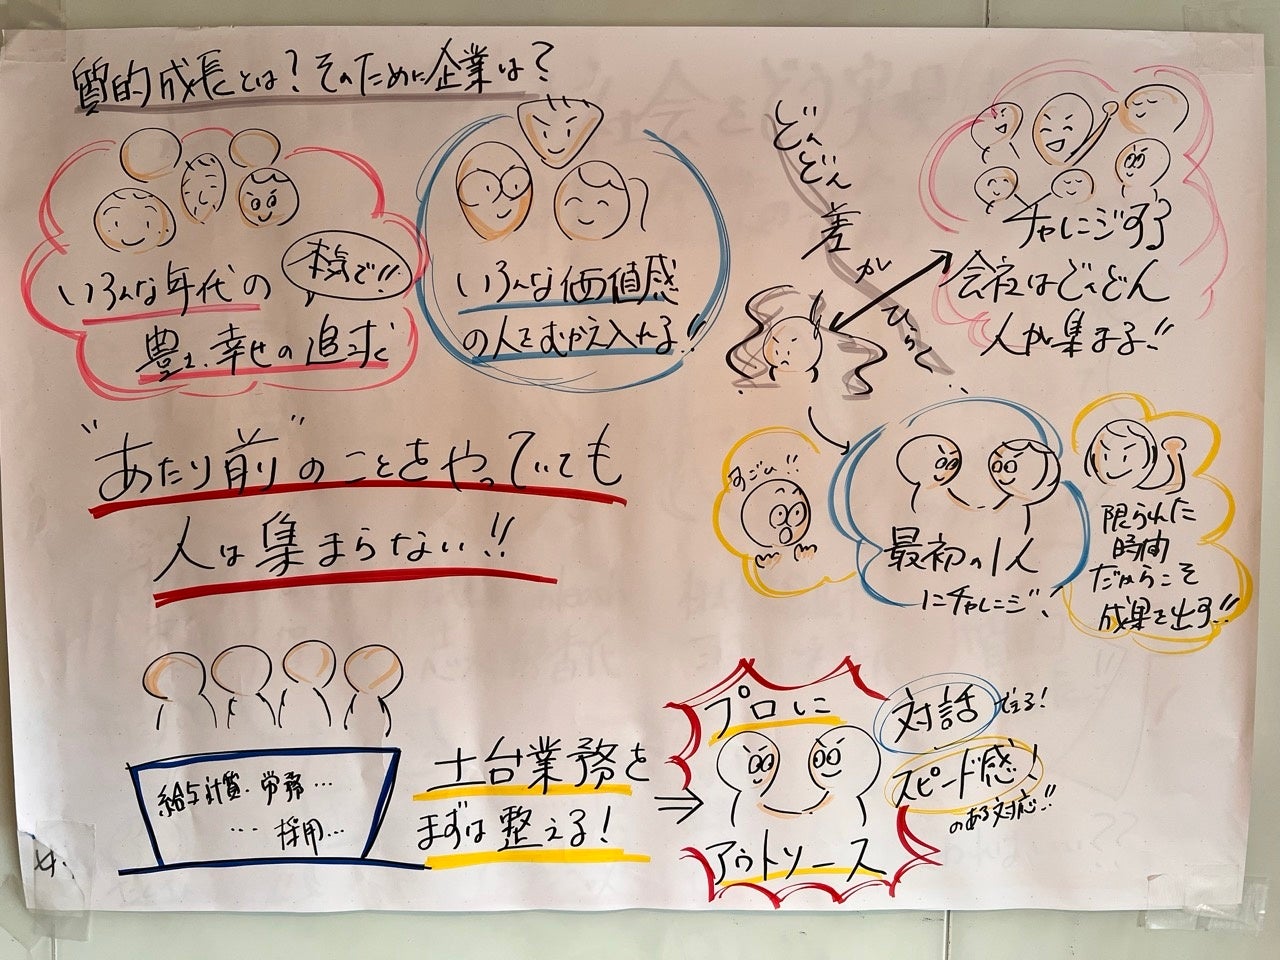 質的成長とは?そのために企業は?
いろんな年代の
本気で!!
豊さ、幸せの追求
いろんな価値感
の人をむかえ入れる!!
どんどん
差
が
ひらく
チャレンジする
会社はどんどん
人が集まる!!
"あたり前"のことをやっていても
人は集まらない!!
すごい!!
最初の1人
にチャレンジ!
限られた
時間
だからこそ
成果を出す!!
給与計算・労務…
…採用…
土台業務を
まずは整える!
⇒
プロに
アウトソース
対話できる!
スピード感!
のある対応!!